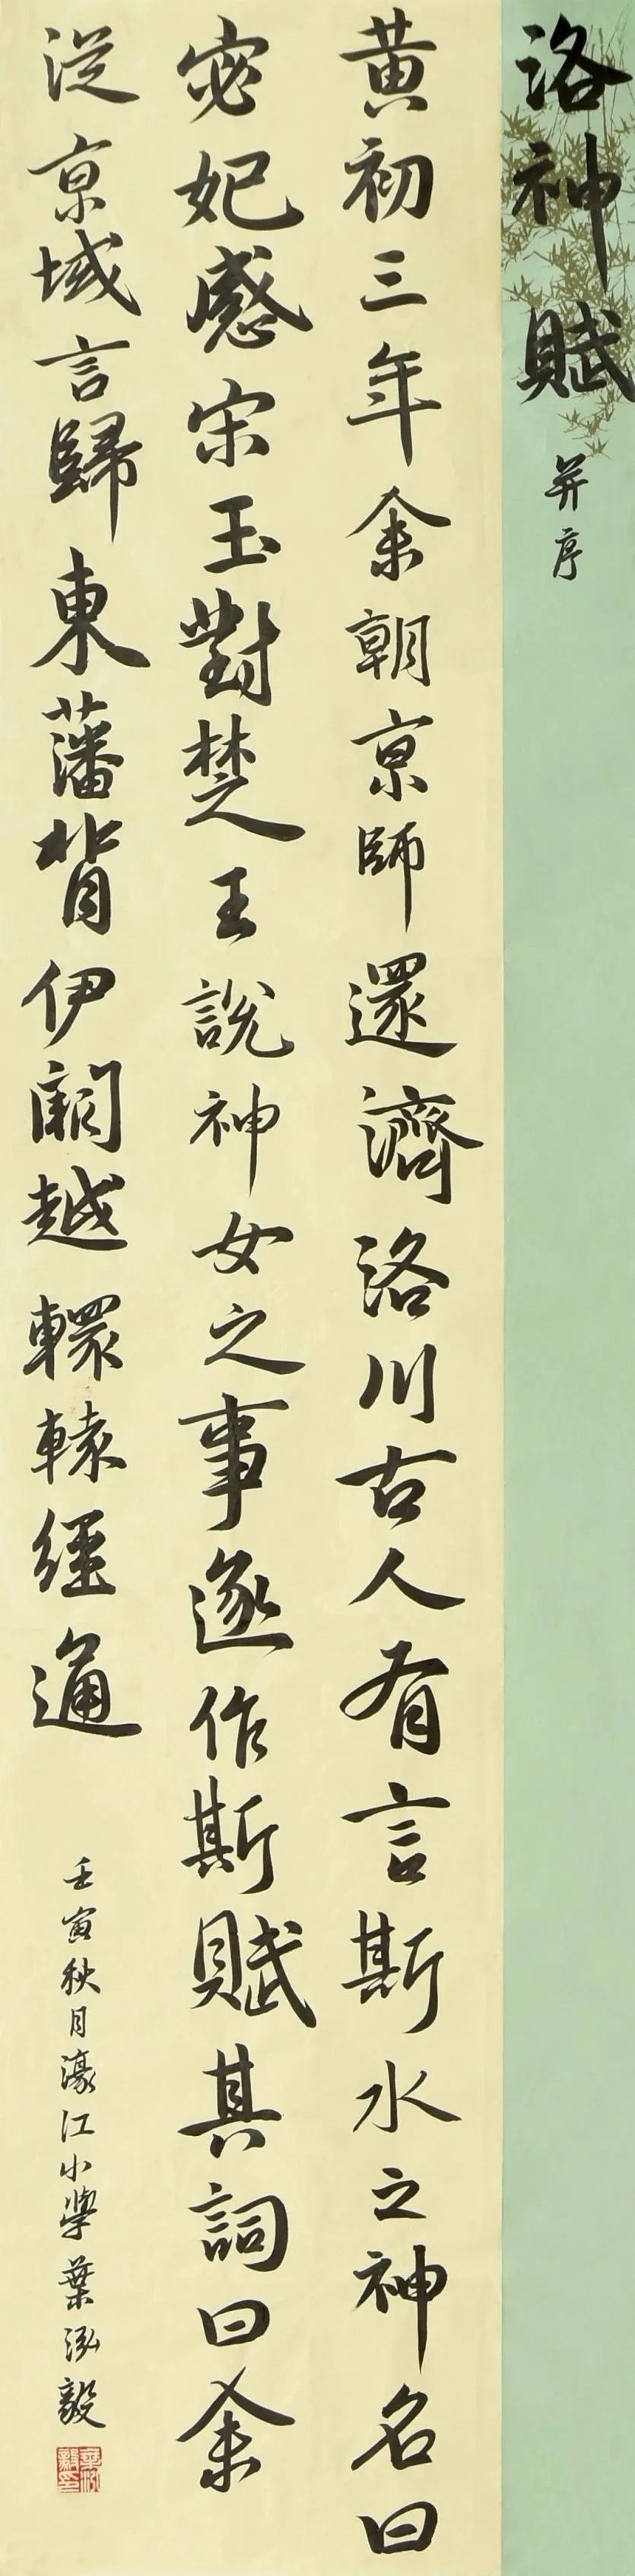 洛神賦 并序
黄初三年余朝京師還濟洛川古人有言斯水之神名曰
宓妃感宋玉對楚王說神女之事遂作斯賦其詞曰余
從京域言歸東藩背伊闕越轘轅經通
壬寅秋月濠江小學葉泓毅
葉泓毅印